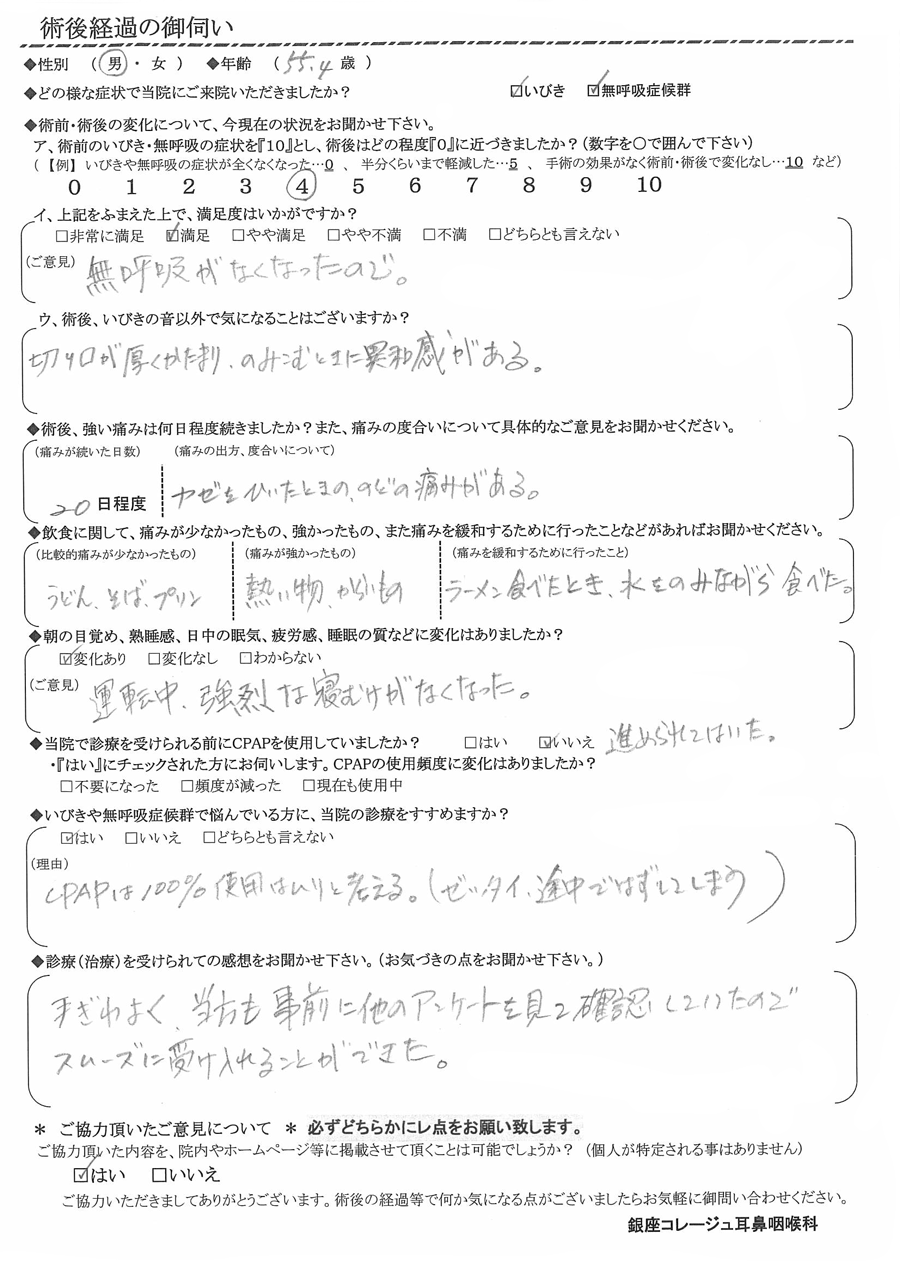 術後経過の御伺い
◆性別 （ 男 ・ 女 ） ◆年齢 （ 55.4 歳 ）
◆どの様な症状で当院にご来院いただきましたか？ ☑いびき ☑無呼吸症候群
◆術前・術後の変化について、今現在の状況をお聞かせ下さい。
ア、術前のいびき・無呼吸の症状を『10』とし、術後はどの程度『0』に近づきましたか？（数字を○で囲んで下さい）
（【例】 いびきや無呼吸の症状が全くなくなった…0 、 半分くらいまで軽減した…5 、 手術の効果がなく術前・術後で変化なし…10 など）
0 1 2 3 4 5 6 7 8 9 10
イ、上記をふまえた上で、満足度はいかがですか？
□非常に満足 ☑満足 □やや満足 □やや不満 □不満 □どちらとも言えない
（ご意見） 無呼吸がなくなったので。
ウ、術後、いびきの音以外で気になることはございますか？
切り口が厚くかたまり、のみこむときに異和感がある。
◆術後、強い痛みは何日程度続きましたか？また、痛みの度合いについて具体的なご意見をお聞かせください。
（痛みが続いた日数） （痛みの出方、度合いについて）
20 日程度 カゼをひいたときの、のどの痛みがある。
◆飲食に関して、痛みが少なかったもの、強かったもの、また痛みを緩和するために行ったことなどがあればお聞かせください。
（比較的痛みが少なかったもの） （痛みが強かったもの） （痛みを緩和するために行ったこと）
うどん、そば、プリン 熱い物、からいもの ラーメン食べたとき、水をのみながら食べた。
◆朝の目覚め、熟睡感、日中の眠気、疲労感、睡眠の質などに変化はありましたか？
☑変化あり □変化なし □わからない
（ご意見） 運転中、強烈な寝むけがなくなった。
◆当院で診療を受けられる前にCPAPを使用していましたか？ □はい ☑いいえ 進められてはいた。
・『はい』にチェックされた方にお伺いします。CPAPの使用頻度に変化はありましたか？
□不要になった □頻度が減った □現在も使用中
◆いびきや無呼吸症候群で悩んでいる方に、当院の診療をすすめますか？
☑はい □いいえ □どちらとも言えない
（理由）
CPAPは100％使用はムリと考える。（ゼッタイ、途中ではずしてしまう）
◆診療（治療）を受けられての感想をお聞かせ下さい。（お気づきの点をお聞かせ下さい。）
手ぎわよく、当方も事前に他のアンケートを見て確認していたので
スムーズに受け入れることができた。
＊ ご協力頂いたご意見について ＊ 必ずどちらかにレ点をお願い致します。
ご協力頂いた内容を、院内やホームページ等に掲載させて頂くことは可能でしょうか？ （個人が特定される事はありません）
☑はい □いいえ
ご協力いただきましてありがとうございます。術後の経過等で何か気になる点がございましたらお気軽に御問い合わせください。
銀座コレージュ耳鼻咽喉科